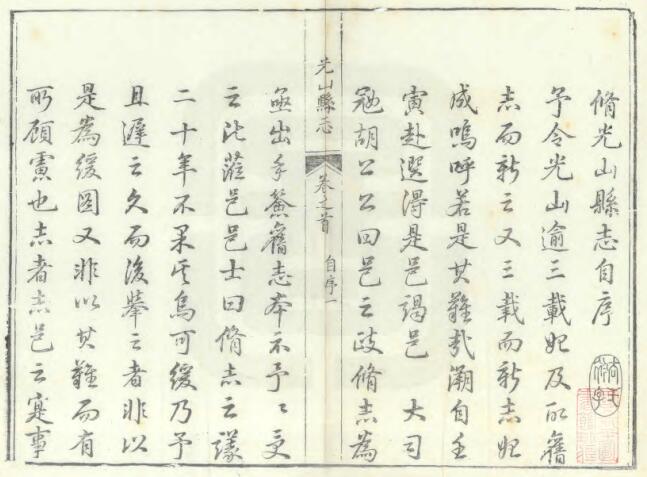 脩光山縣志自序
予令光山逾三載始及取舊
志而新之又三載而新志始
成嗚呼若是其難哉溯自壬
寅赴選得是邑謁邑大司
冠胡公公曰邑之政脩志為
亟出手舊志本示予予受
之比蒞邑邑士曰脩志之議
二十年不果矣烏可緩乃予
且遲之久而後舉之者非以
是為緩圖又非以其難而有
所顧慮也志者志邑之寔事
光山縣志
卷之首
自序一